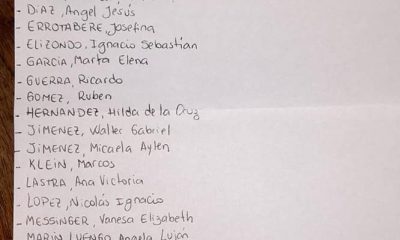 - DÍAZ, Angel Jesús
- ERROTABERE, Josefina
- ELIZONDO, Ignacio Sebastían
- GARCÍA, Marta Elena
- GUERRA, Ricardo
- GOMEZ, Ruben
- HERNANDEZ, Hilda de la Cruz
- JIMENEZ, Walter Gabriel
- JIMENEZ, Micaela Aylen
- KLEIN, Marcos
- LASTRA, Ana Victoria
- LOPEZ, Nicolás Ignacio
- MESSINGER, Vanesa Elizabeth
- MARIN LUENGO, Angela Luján